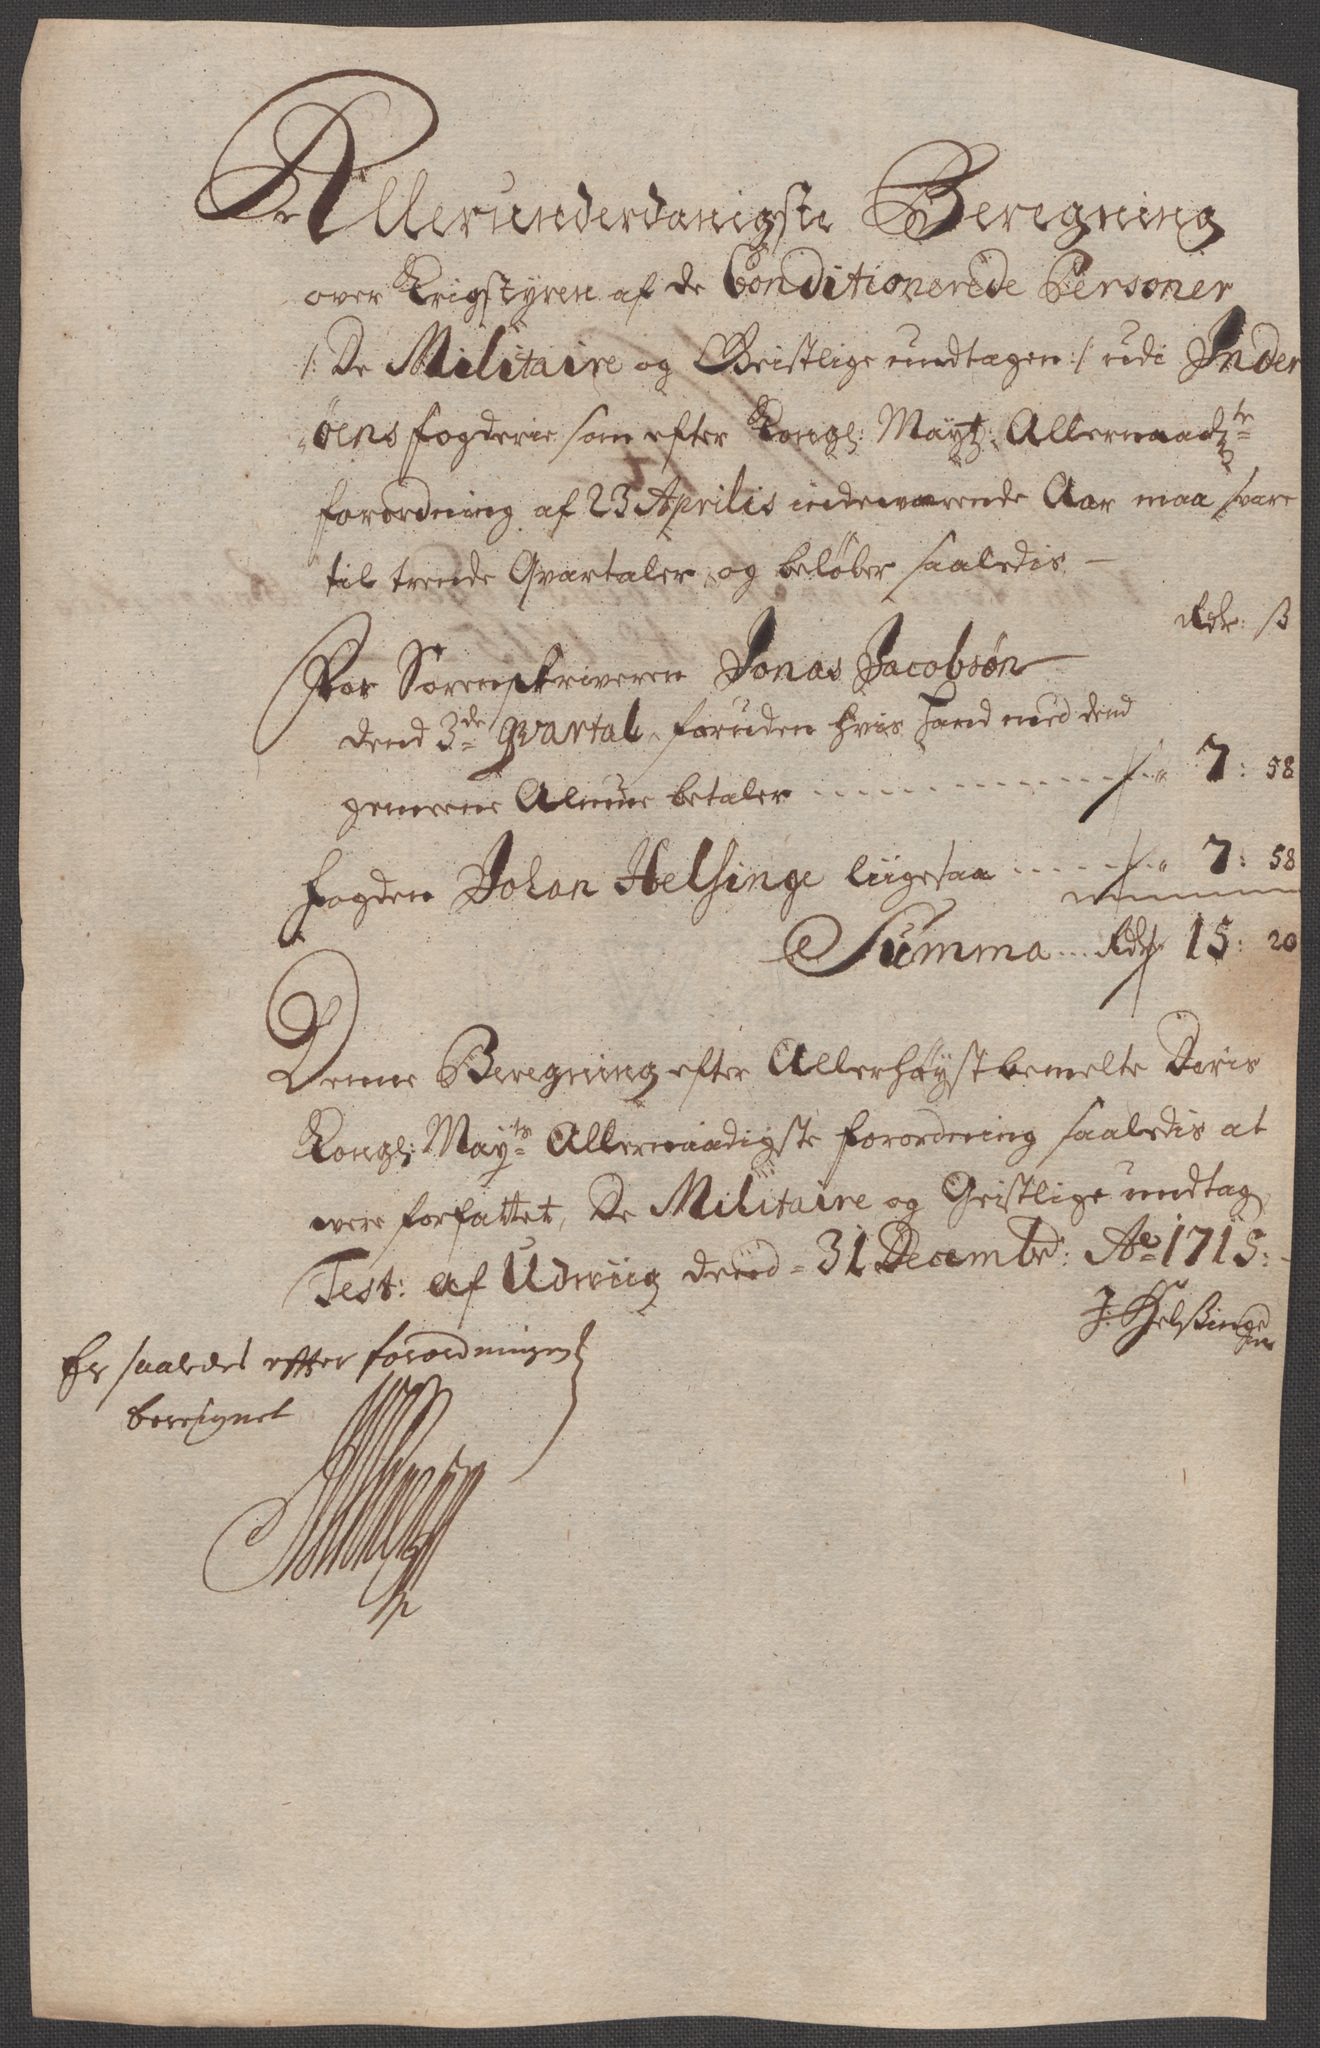 Allerunderdanigste Beregning
over Krigstyren af de Conditionerede Personer
/: De Militaire og Geistlige undtagen :/ udi Inder
øens fogderie som efter Kongl: Maytz: Allernaadste
forordning af 23 Aprilis indeværende Aar maa svare
til trende Qvartaler, og beløber saaledis –
Rdr: ß
For Sorenskriveren Jonas Jacobsøn
dend 3de Qvartal, foruden hvis hand med dend
gemeene Almue betaler 7: 58
fogden Johan Helsinge liigesaa 7: 58
Summa Rdr 15: 20
Denne Beregning efter Allerhøyst bemelte Deris
Kongl: Mayts Allernaadigste forordning saaledis at
were forfattet, De Militaire og Geistlige undtag
Test: af Udwiig dend 31 Decembr: Ao 1715:
J: Helßinge
Er saaledes efter forordningen
beregnet